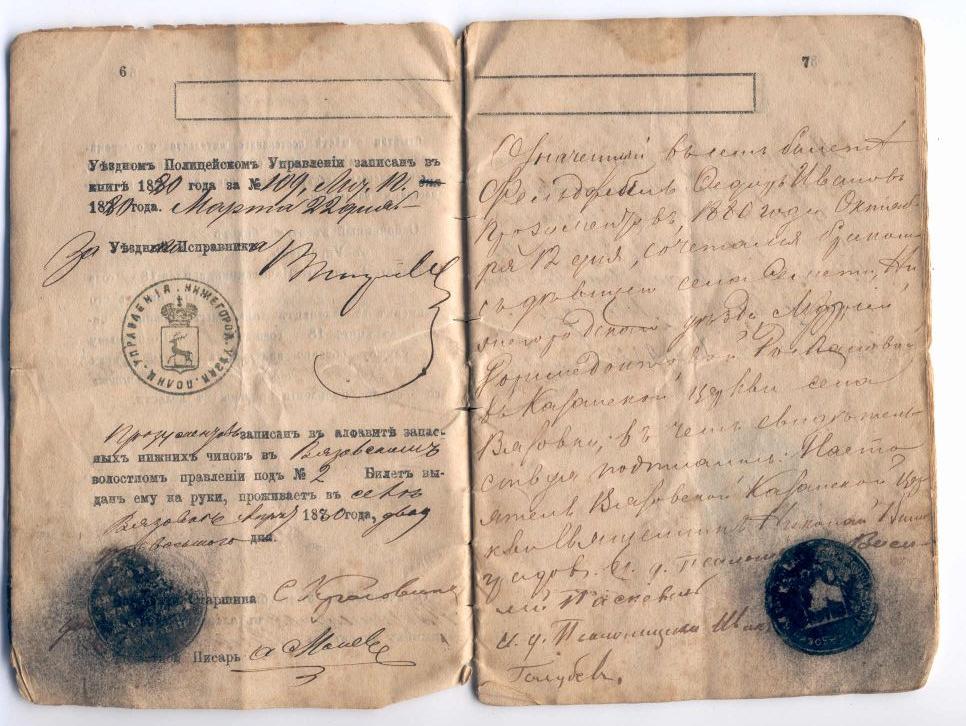 6
Уѣздномъ Полицейскомъ Управленіи записан въ
книгѣ 1880 года за № 109, Лит. П.
1880 года. Марта 22 дня
За Уѣзднаго Исправника
НИЖЕГОРОД. УѢЗДН. ПОЛИЦ. УПРАВЛЕНІЯ
записан въ алфавитѣ запас-
ныхъ нижнихъ чиновъ въ Вязовскомъ
волостномъ правленіи подъ № 2 Билетъ вы-
данъ ему на руки, проживаетъ въ селѣ
Вязовкѣ 1880 года, двад
восьмого дня.
Старшина
Писарь
7
Означенный въ семъ билетѣ
Фельдфебель Федоръ Ивановъ
1880 года Октяб
ря 12 дня, сочетался бракомъ
съ дѣвицею села Ни
жегородскаго уѣзда Маріей
въ Казанской церкви села
Вязовки, въ чемъ свидѣтель
ствуя подписались. Насто
ятель Вязовской Казанской Цер
кви Священникъ Николай Вино
градовъ. И. д. Васи
лій
И. д. Псаломщика Иван
Голубевъ.